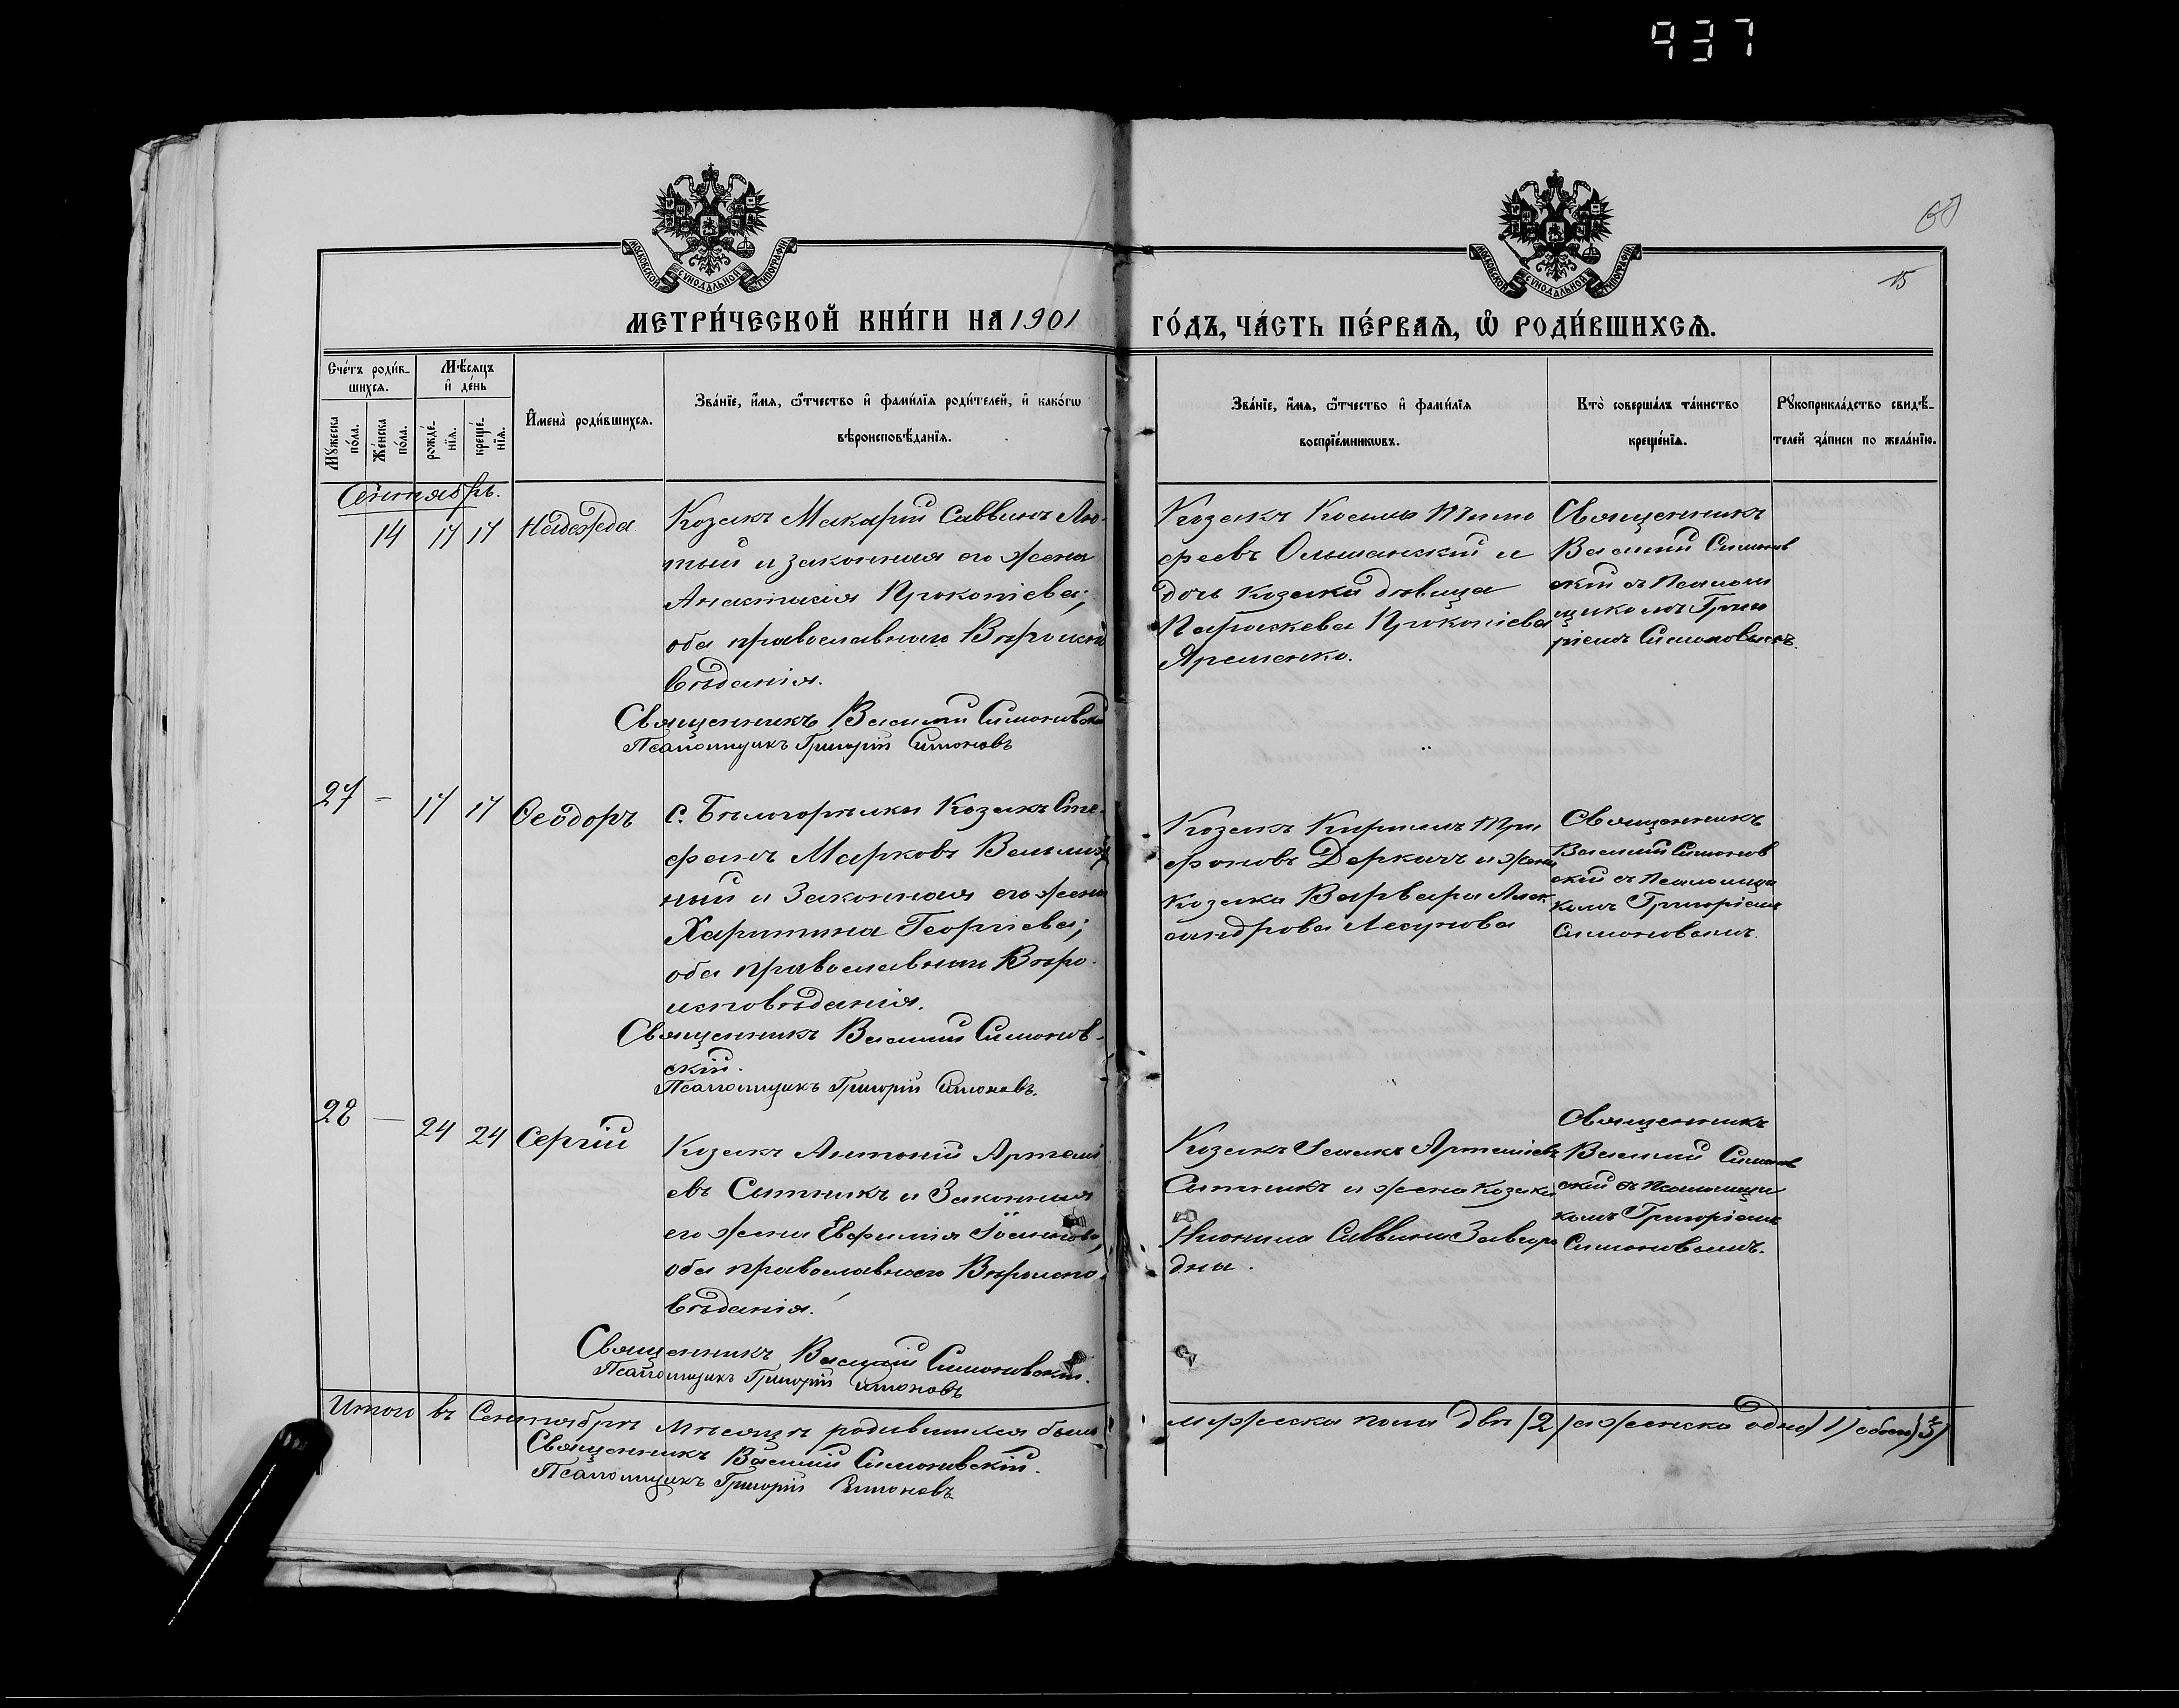 937
МОСКОВСКОЙ СУНОДАЛЬНОЙ ТИПОГРАФІИ
МОСКОВСКОЙ СУНОДАЛЬНОЙ ТИПОГРАФІИ
15
МЕТРИ́ЧЕСКОЙ КНИ́ГИ НА 1901
ГО́ДЪ, ЧА́СТЬ ПЕ́РВАѦ, Ѡ҆ РОДИ́ВШИХСѦ.
Сче́тъ роди́в-
шихсѧ.
Мꙋ́жеска
по́ла.
Же́нска
по́ла.
Мѣ́сѧцъ
и҆ де́нь
рожде́-
нїѧ.
креще́-
нїѧ.
И҆мена̀ роди́вшихсѧ.
Зва́нїе, и҆́мѧ, ѻ҆́тчество и҆ фами́лїѧ роди́телей, и҆ како́гѡ
вѣроисповѣ́данїѧ.
Зва́нїе, и҆́мѧ, ѻ҆́тчество и҆ фами́лїѧ
воспрїе́мникѡвъ.
Кто̀ соверша́лъ та́инство
креще́нїѧ.
Рꙋкоприкла́дство свидѣ́-
телей за́писи по жела́нїю.
Сентябрь.
14 17 17 Надежда.
Козакъ Макарій Саввинъ Лю-
тый и законная его жена
Анастасія Прокопіева;
оба православнаго Вѣроиспо
вѣданія.
Священникъ Василій Симоновскій
Псаломщикъ Григорій Симоновъ
Козакъ Косма Тимо
феевъ Ольшанскій и
дочь козака дѣвица
Параскева Прокопіева
Яременко.
Священникъ
Василій Симонов
скій съ Псаломщ
щикомъ Григо
ріемъ Симоновымъ.
27 - 17 17 Ѳеодоръ
с. Бѣлогорѣлки Козакъ Сте-
фанъ Марковъ
ный и Законная его жена
Харитина Георгіева;
оба православнаго Вѣро-
исповѣданія.
Священникъ Василій Симонов-
скій.
Псаломщикъ Григорій Симоновъ.
Козакъ Кириллъ Три
фоновъ Деркачъ и жена
козака Варвара Алек-
сандрова
Священникъ
Василій Симонов
скій съ Псаломщи
комъ Григоріемъ
Симоновымъ.
28 — 24 24 Сергій
Козакъ Антоній Артемі
евъ Ситникъ и Законная
его жена Евфимія Іоаннова,
оба православнаго Вѣроиспо-
вѣданія.
Священникъ Василій Симоновскій.
Псаломщикъ Григорій Симоновъ
Козакъ Исаакъ Артеміевъ
Ситникъ и жена Козака
Неонила Саввина Завгоро
дна.
Священникъ
Василій Симонов
скій съ Псаломщи
комъ Григоріемъ
Симоновымъ.
Итого въ Сентябрѣ мѣсяцѣ родившихся было
мужеска пола два /2/ а женска одна /1/ обоего /3/
Священникъ Василій Симоновскій.
Псаломщикъ Григорій Симоновъ